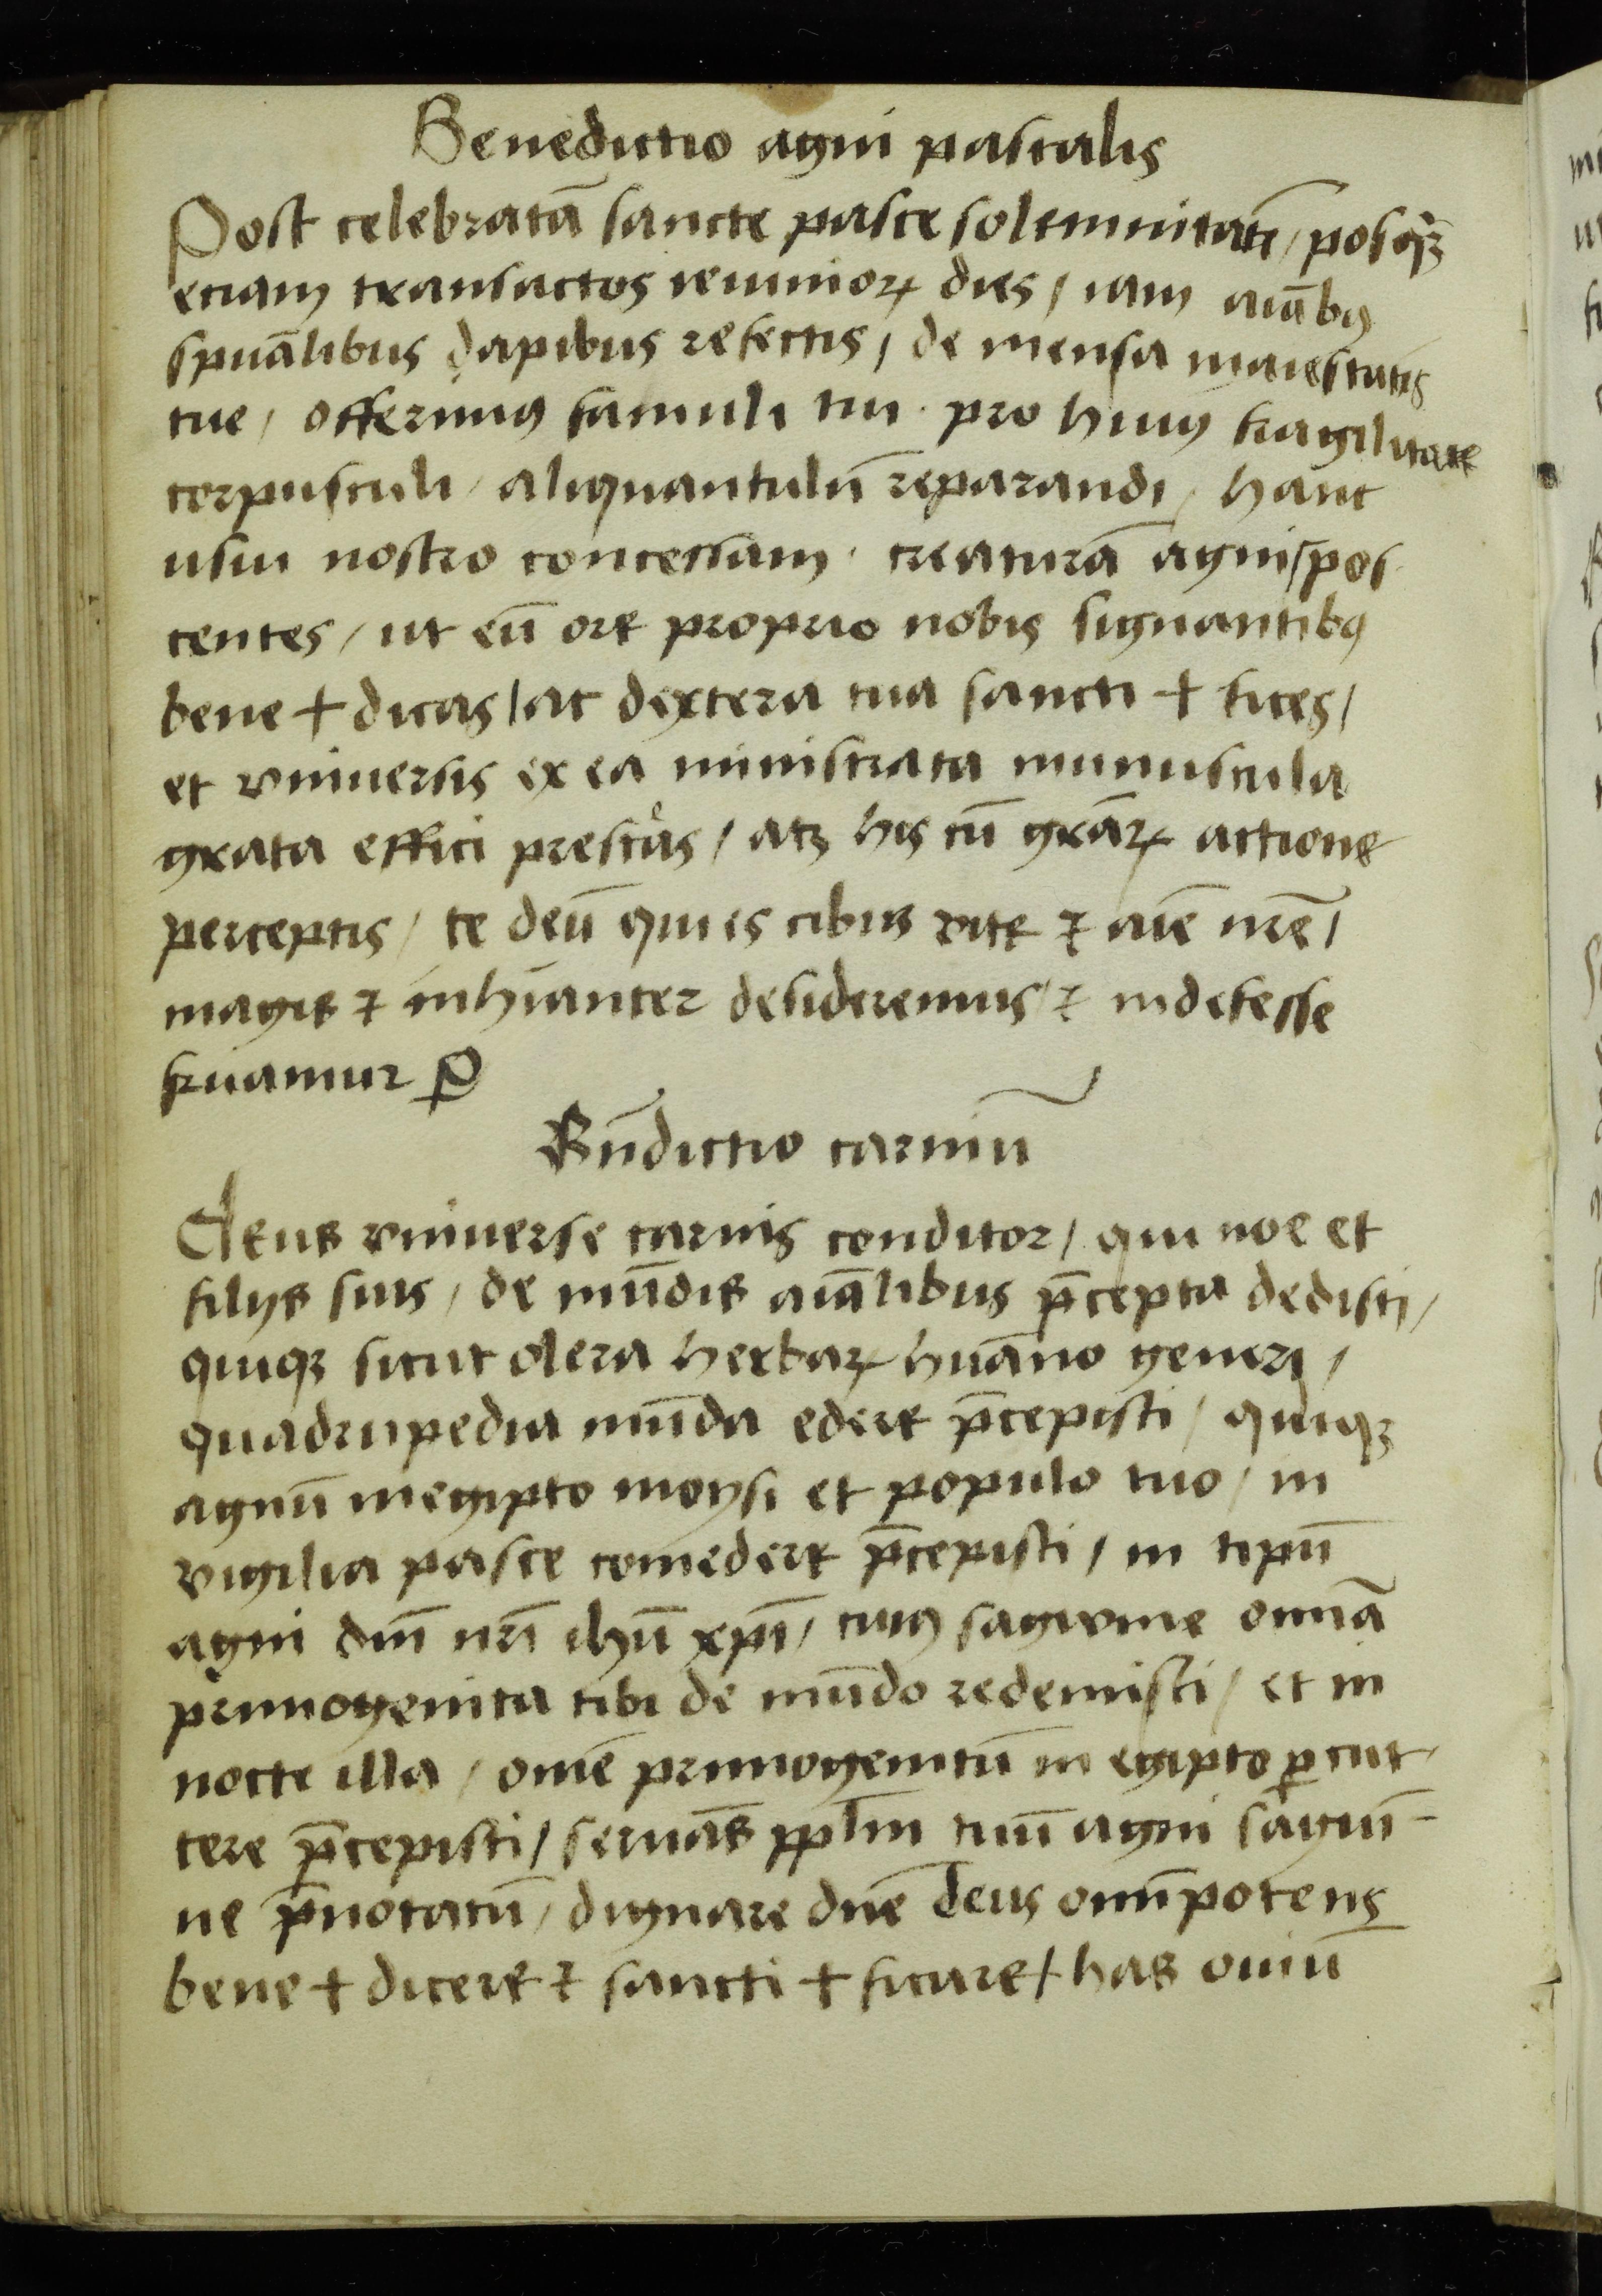 Benedictio agni pascalis
Post celebratā sancte pasce solemnitatē / posq̄ꝫ
etiam transactos ieiunioꝝ dies / iam aīabꝰ
spūālibus dapibus refectis / de mensa maiestatis
tue / offerimꝰ famuli tui · pro huiꝰ fragilitate
corpusculi / aliquantulū reparandi / hanc
usui nostro concessam · creaturā agni / pos
centes / ut eū ore proprio nobis signantibꝰ
bene + dicas / ac dextera tua sancti + fices /
et vniuersis ex ea ministrata munuscula
grata effici prestas / atqꝫ his cū grāꝝ actione
perceptis / te deū qui es cibus vite ⁊ aīe nrē /
magis ⁊ inhianter desideremus / ⁊ indefesse
fruamur P
Bn̄dictio carniū
Deus vniuerse carnis conditor / qui noe et
filijs suis / de mūdis aīalibus p̄cepta dedisti /
quiqꝫ sicut olera herbaꝝ huāno generi /
quadrupedia mūda edere p̄cepisti / quiqꝫ
agnū in egipto moysi et populo tuo / in
vigilia pasce comedere p̄cepisti / in tipū
agni dn̄i nr̄i ihū xp̄i / cuiꝰ sagwine omīa
primogenita tibi de mūdo redemisti / et in
nocte illa / omē primogenitū in egipto ꝑcut
tere p̄cepisti / seruās pplm̄ tuū agni sāgui-
ne p̄notatū / dignare dn̄e deus omīpotens
bene + dicere ⁊ sancti + ficare / has ouiū